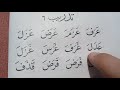 تدريب ٦
عَرَفَ غَرَفَ عَرَضَ عَزَلَ
عَدَلَ غَرَسَ غَزَلَ
فَرَضَ قَرَضَ قَذَفَ